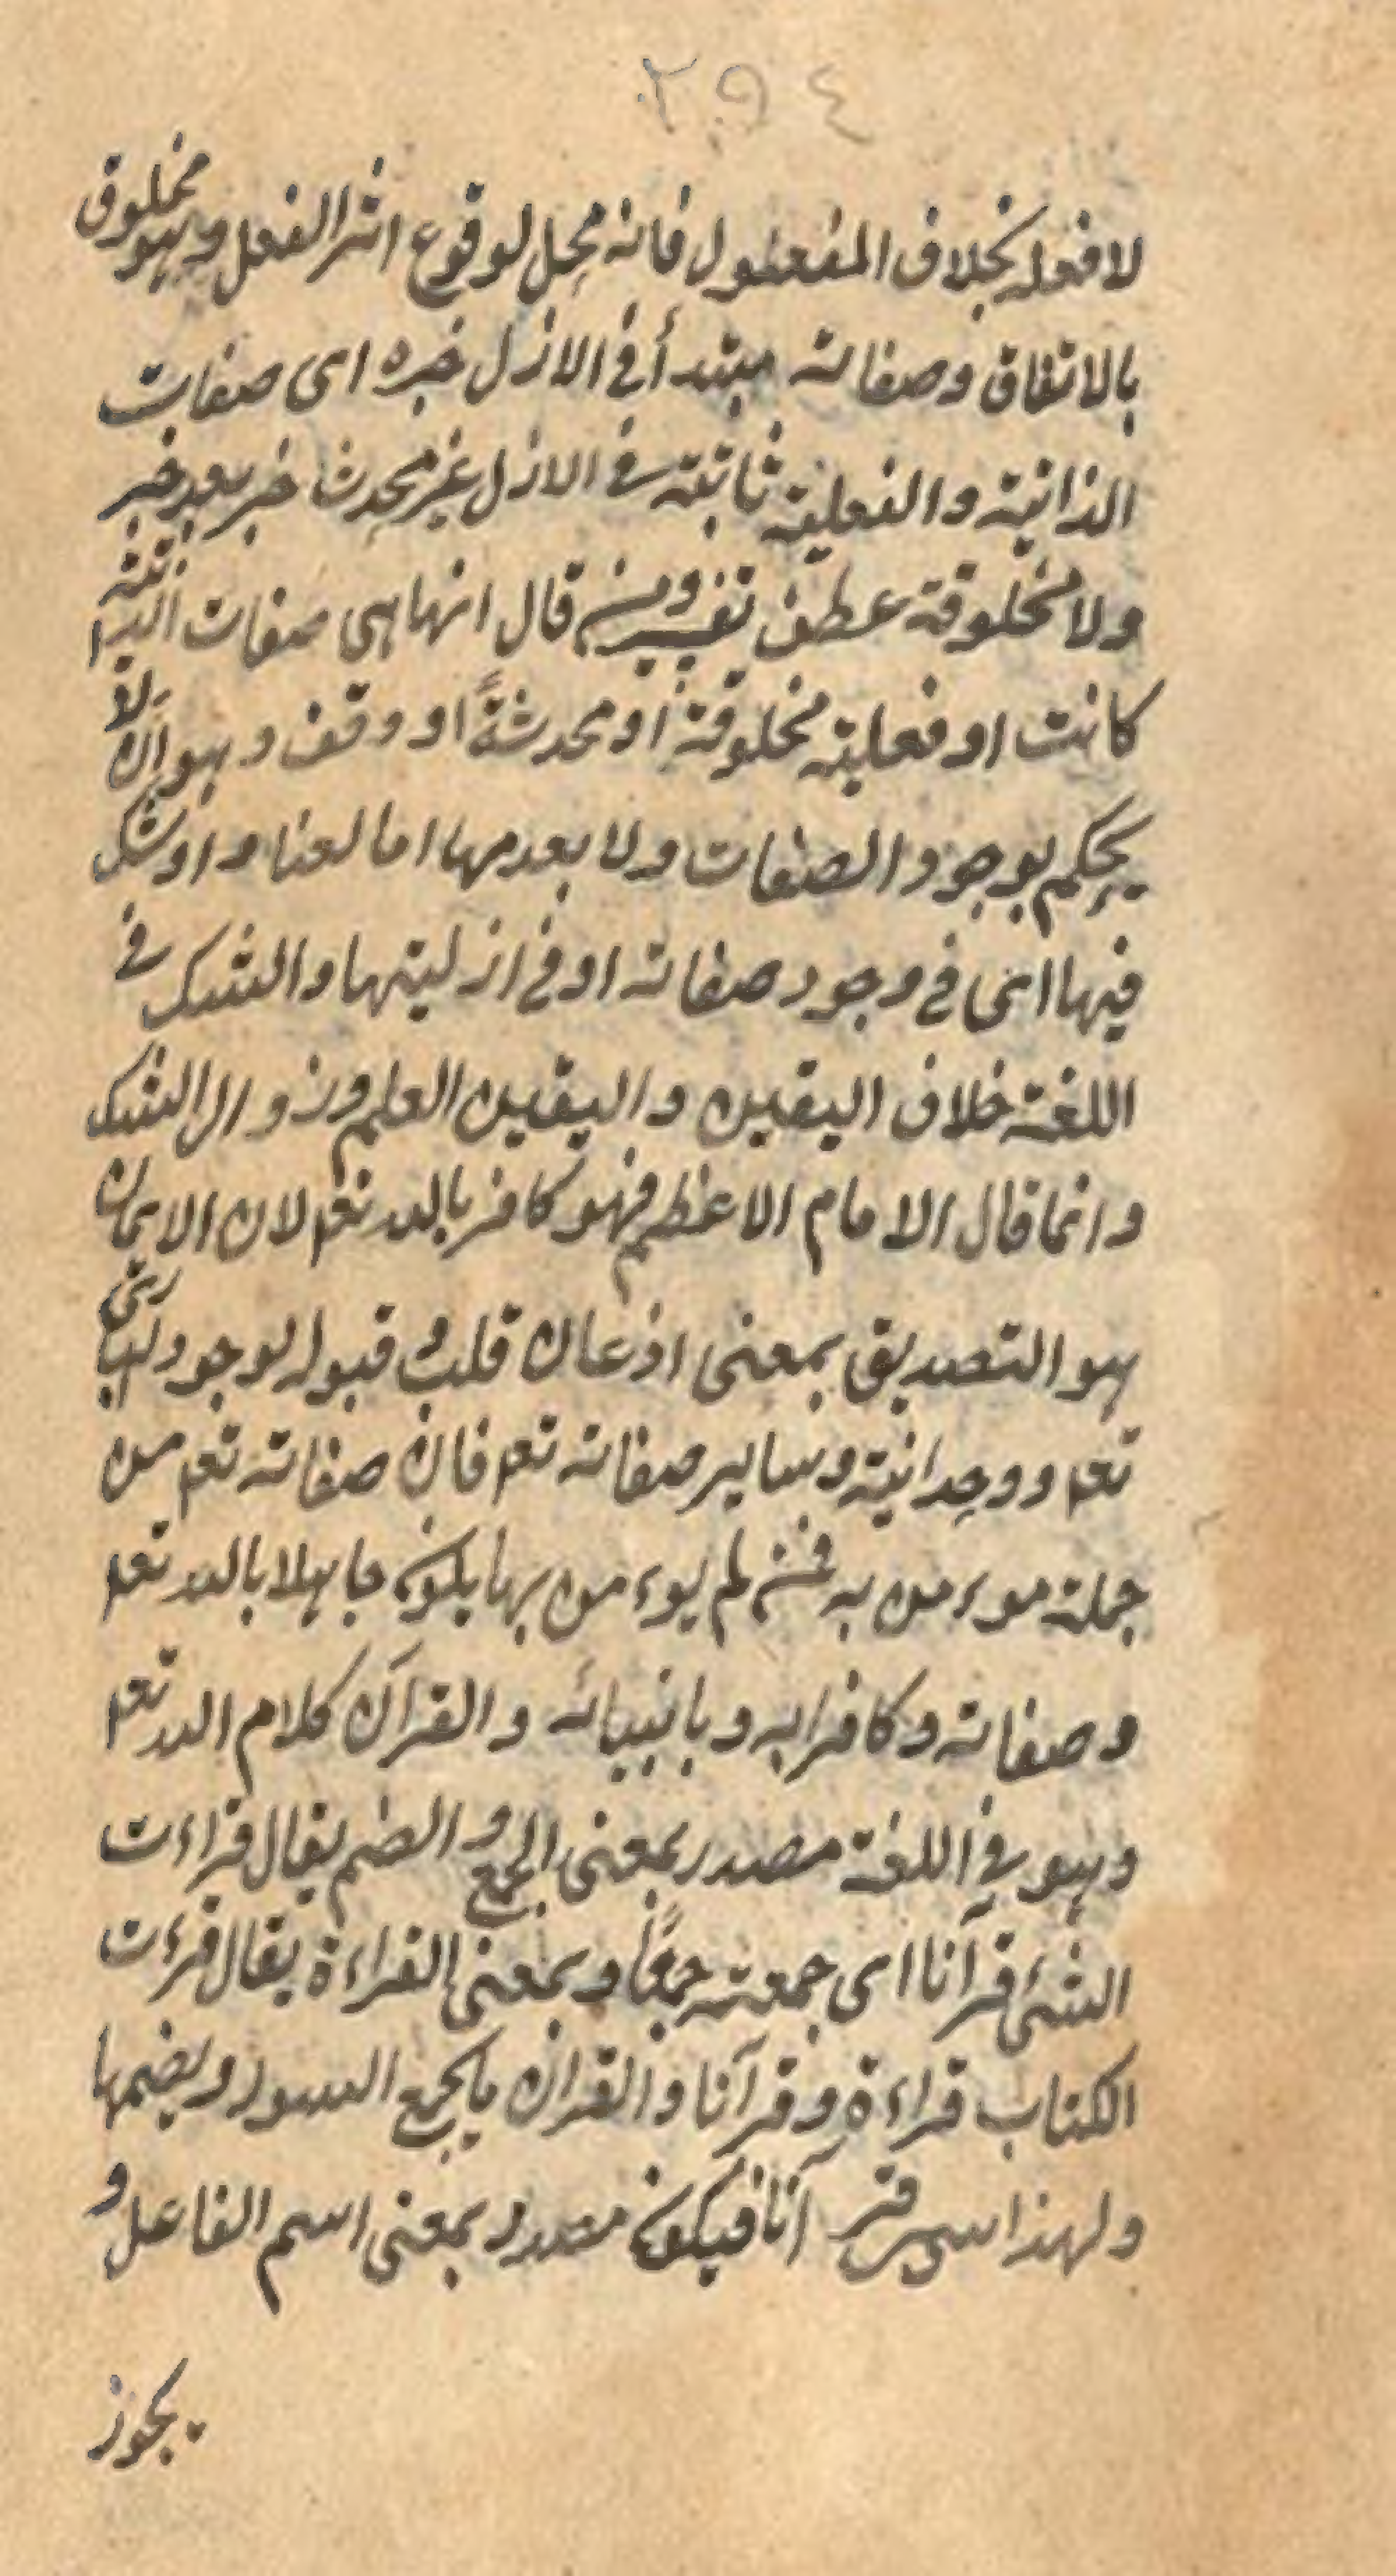 ٢٩٤
لا فعله بخلاف المفعول فانه محل لوقوع اثر الفعل وهو مخلوق
بالاتفاق وصفاته مبتدأ في الازل خبره اى صفات
الذاتية والفعلية ثابتة في الازل غير محدث خبر بعد خبر
ولا مخلوقة عطف تفسير ومن قال انها هى صفات الذاتية
كانت او فعلية مخلوقة او محدثةً او وقف وهو ان لا
يحكم بوجود الصفات ولا بعدمها اما لعناد او شك
فيها اى في وجود صفاته او في ازليتها والشك في
اللغة خلاف اليقين واليقين العلم وزوال الشك
وانما قال الامام الاعظم فهو كافر بالله تعم لان الايمان
هو التصديق بمعنى اذعان قلب وقبوله لوجود البارى
تعم ووحدانيته وساير صفاته تعم فان صفاته تعم من
جملة موءمن به فمن لم يوءمن بها يكون جاهلا بالله تعم
وصفاته وكافرا به وبانبيائه والقرآن كلام الله تعم
وهو في اللغة مصدر بمعنى الجمع والضم يقال قراءت
الشئ قرآنا اى جمعته جمعًا وبمعنى القراءة يقال قرءت
الكتاب قراءة وقرآنا والقران يجمع السور ويضمها
ولهذا سمى قرآنا فيكون مصدر بمعنى اسم الفاعل و
يجوز